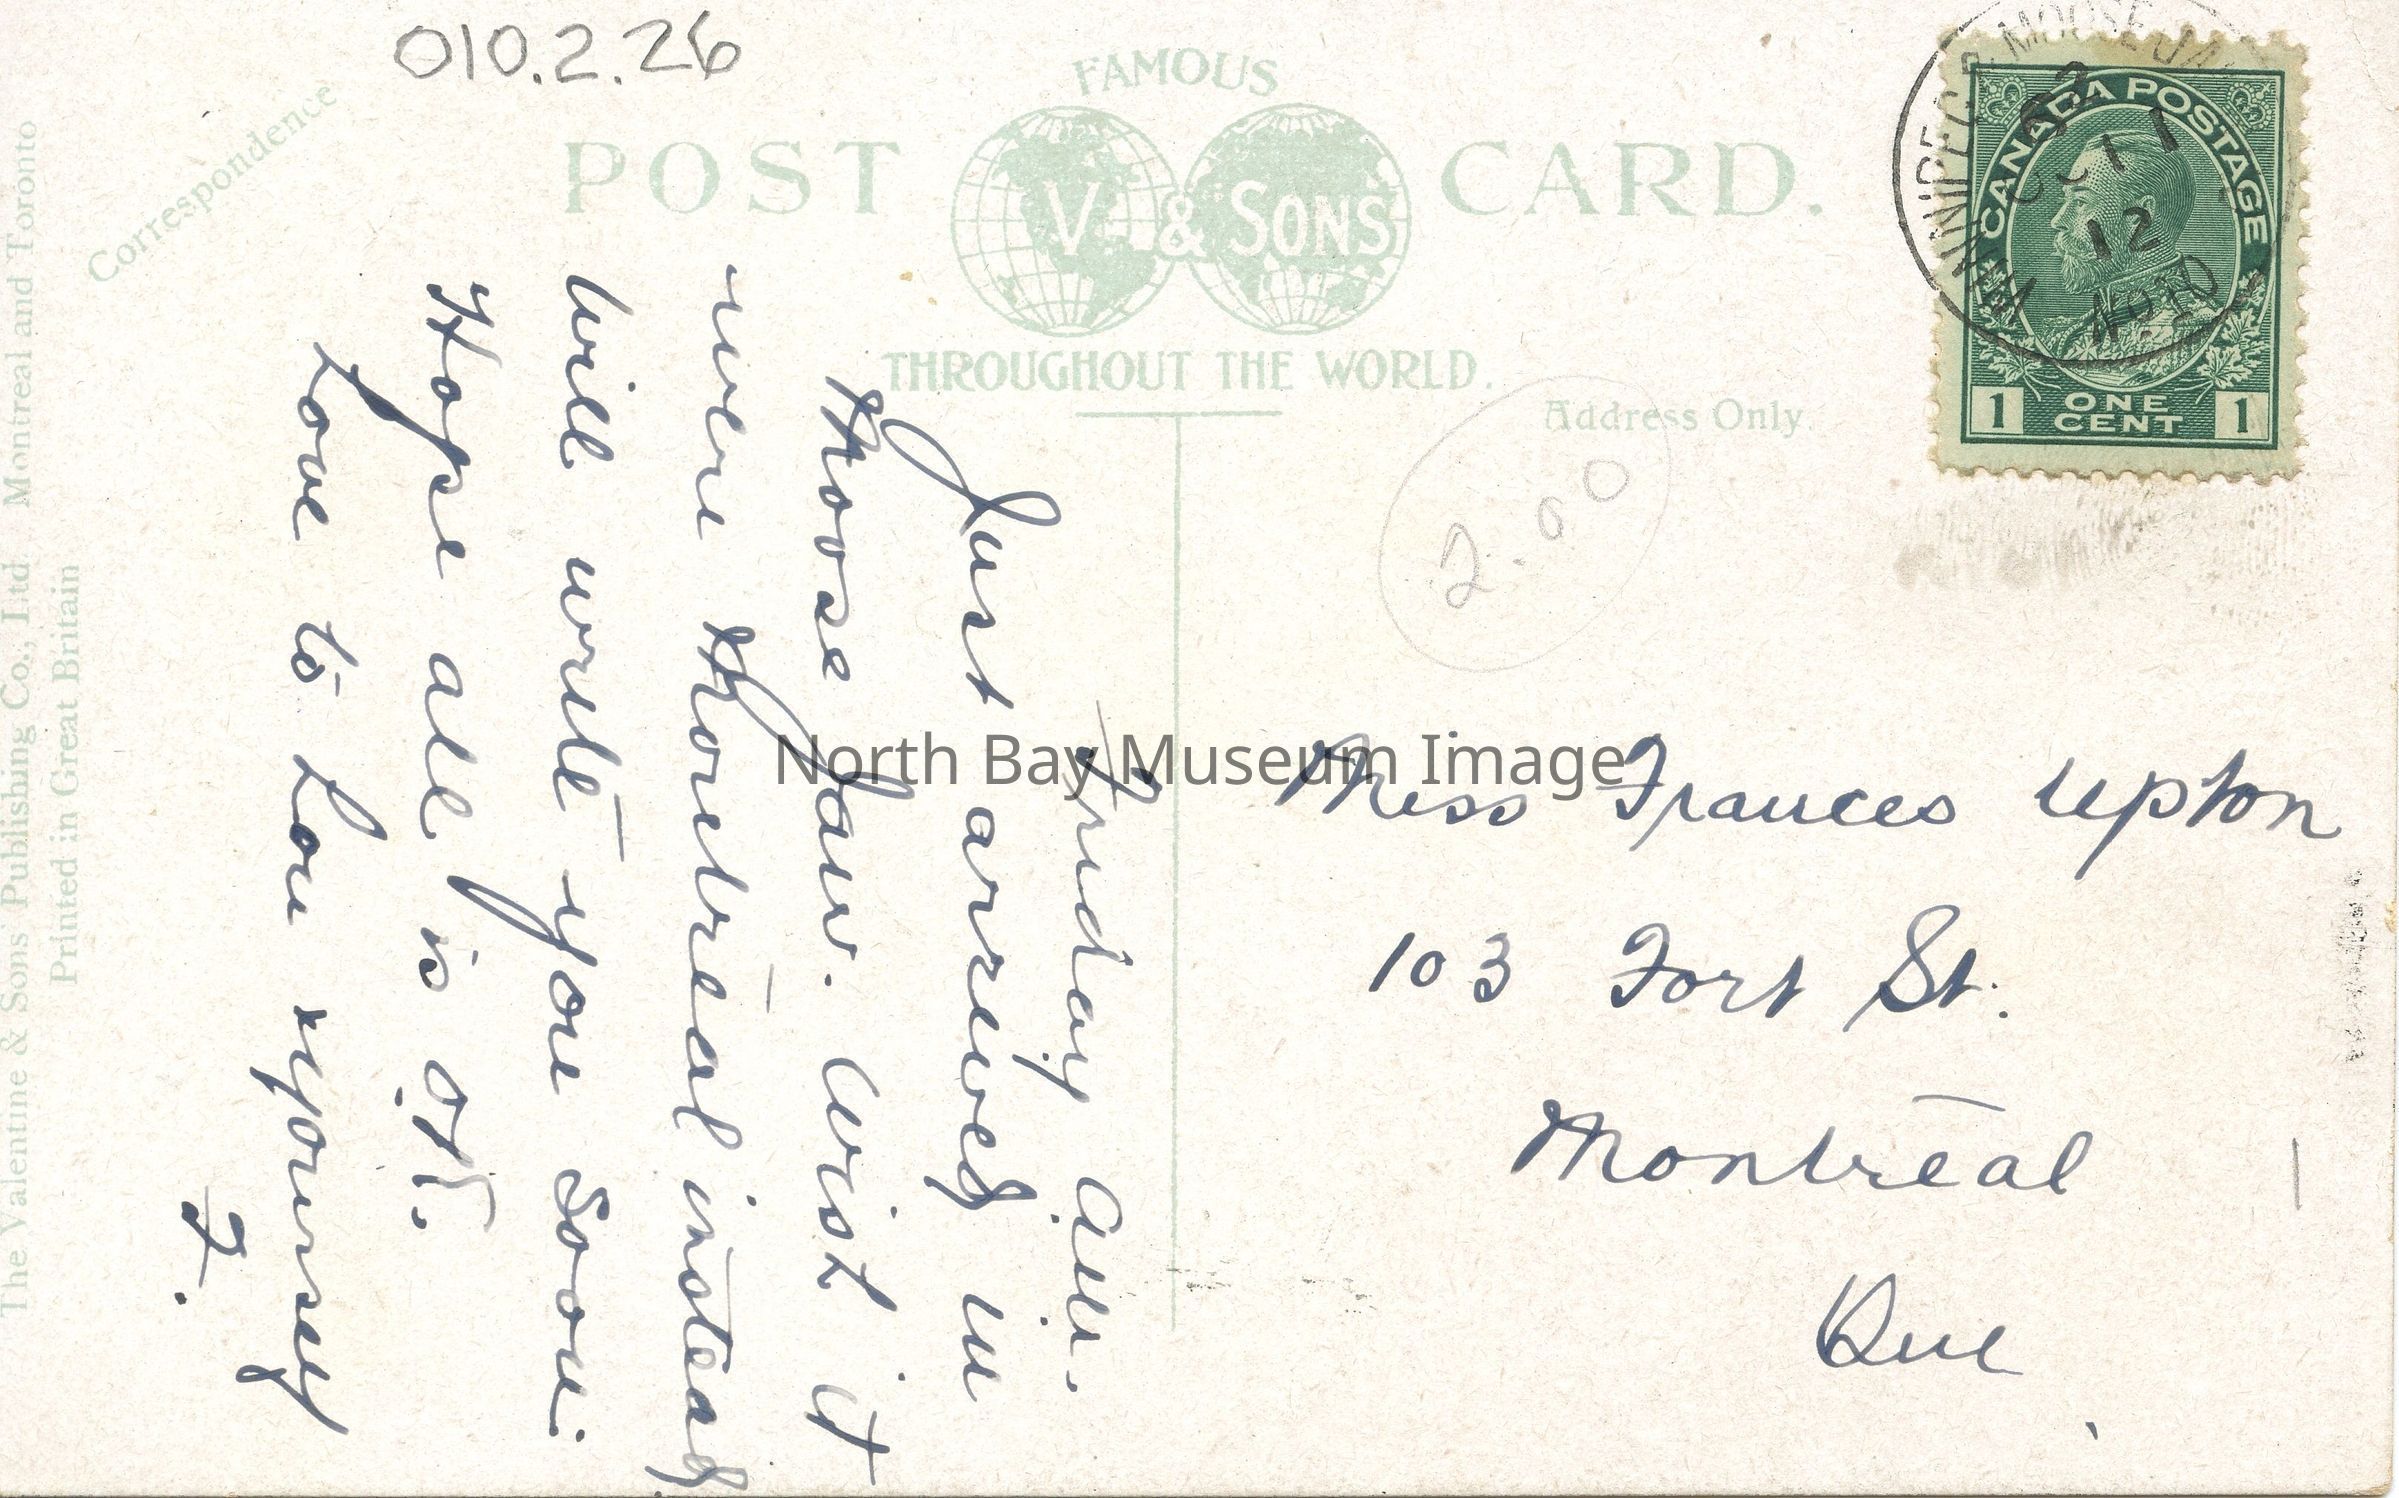 010.2.26
Correspondence
FAMOUS
POST V & SONS CARD.
THROUGHOUT THE WORLD.
Address Only.
2.00
WINNIPEG & MOOSE JAW
OC 11
12
No 10
CANADA POSTAGE
1 ONE CENT 1
Friday am.
Just arrived in
Moose Jaw. Wist it
were Montreal instead
Will write you soon.
Hope all is OK.
Love to Lou & yourself
F.
Miss Frances Upton
103 Fort St.
Montreal
Que
The Valentine & Sons' Publishing Co., Ltd Montreal and Toronto
Printed in Great Britain
North Bay Museum Image